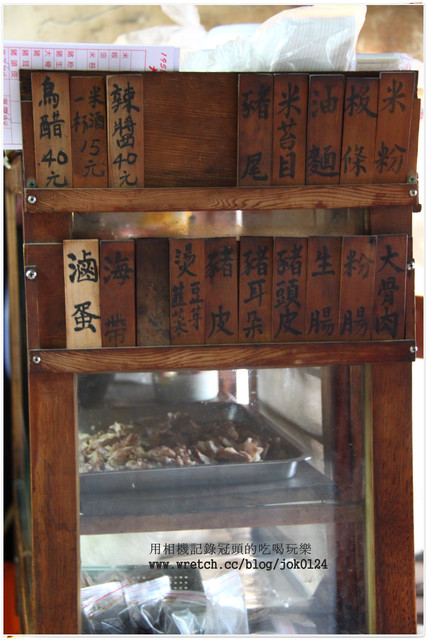 米粉
板條
油麵
米苔目
豬尾
辣醬40元
米酒一杯15元
烏醋40元
大骨肉
粉腸
生腸
豬頭皮
豬耳朵
豬皮
燙豆芽韮菜
海帶
滷蛋
用相機記錄冠頭的吃喝玩樂
www.wretch.cc/blog/jok0124